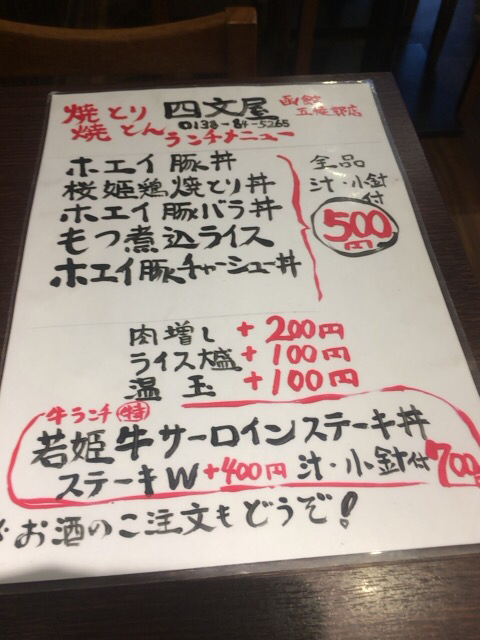 焼とり 四文屋 函館
焼とん 0138-84-5265 五稜郭店
ランチメニュー
ホエイ豚丼
桜姫鶏焼とり丼
ホエイ豚バラ丼
もつ煮込ライス
ホエイ豚チャーシュー丼
全品
汁・小鉢
付
500
円
肉増し +200円
ライス大盛 +100円
温玉 +100円
牛ランチ 特
若姫牛サーロインステーキ丼
ステーキW +400円 汁・小鉢付 700円
※お酒のご注文もどうぞ!